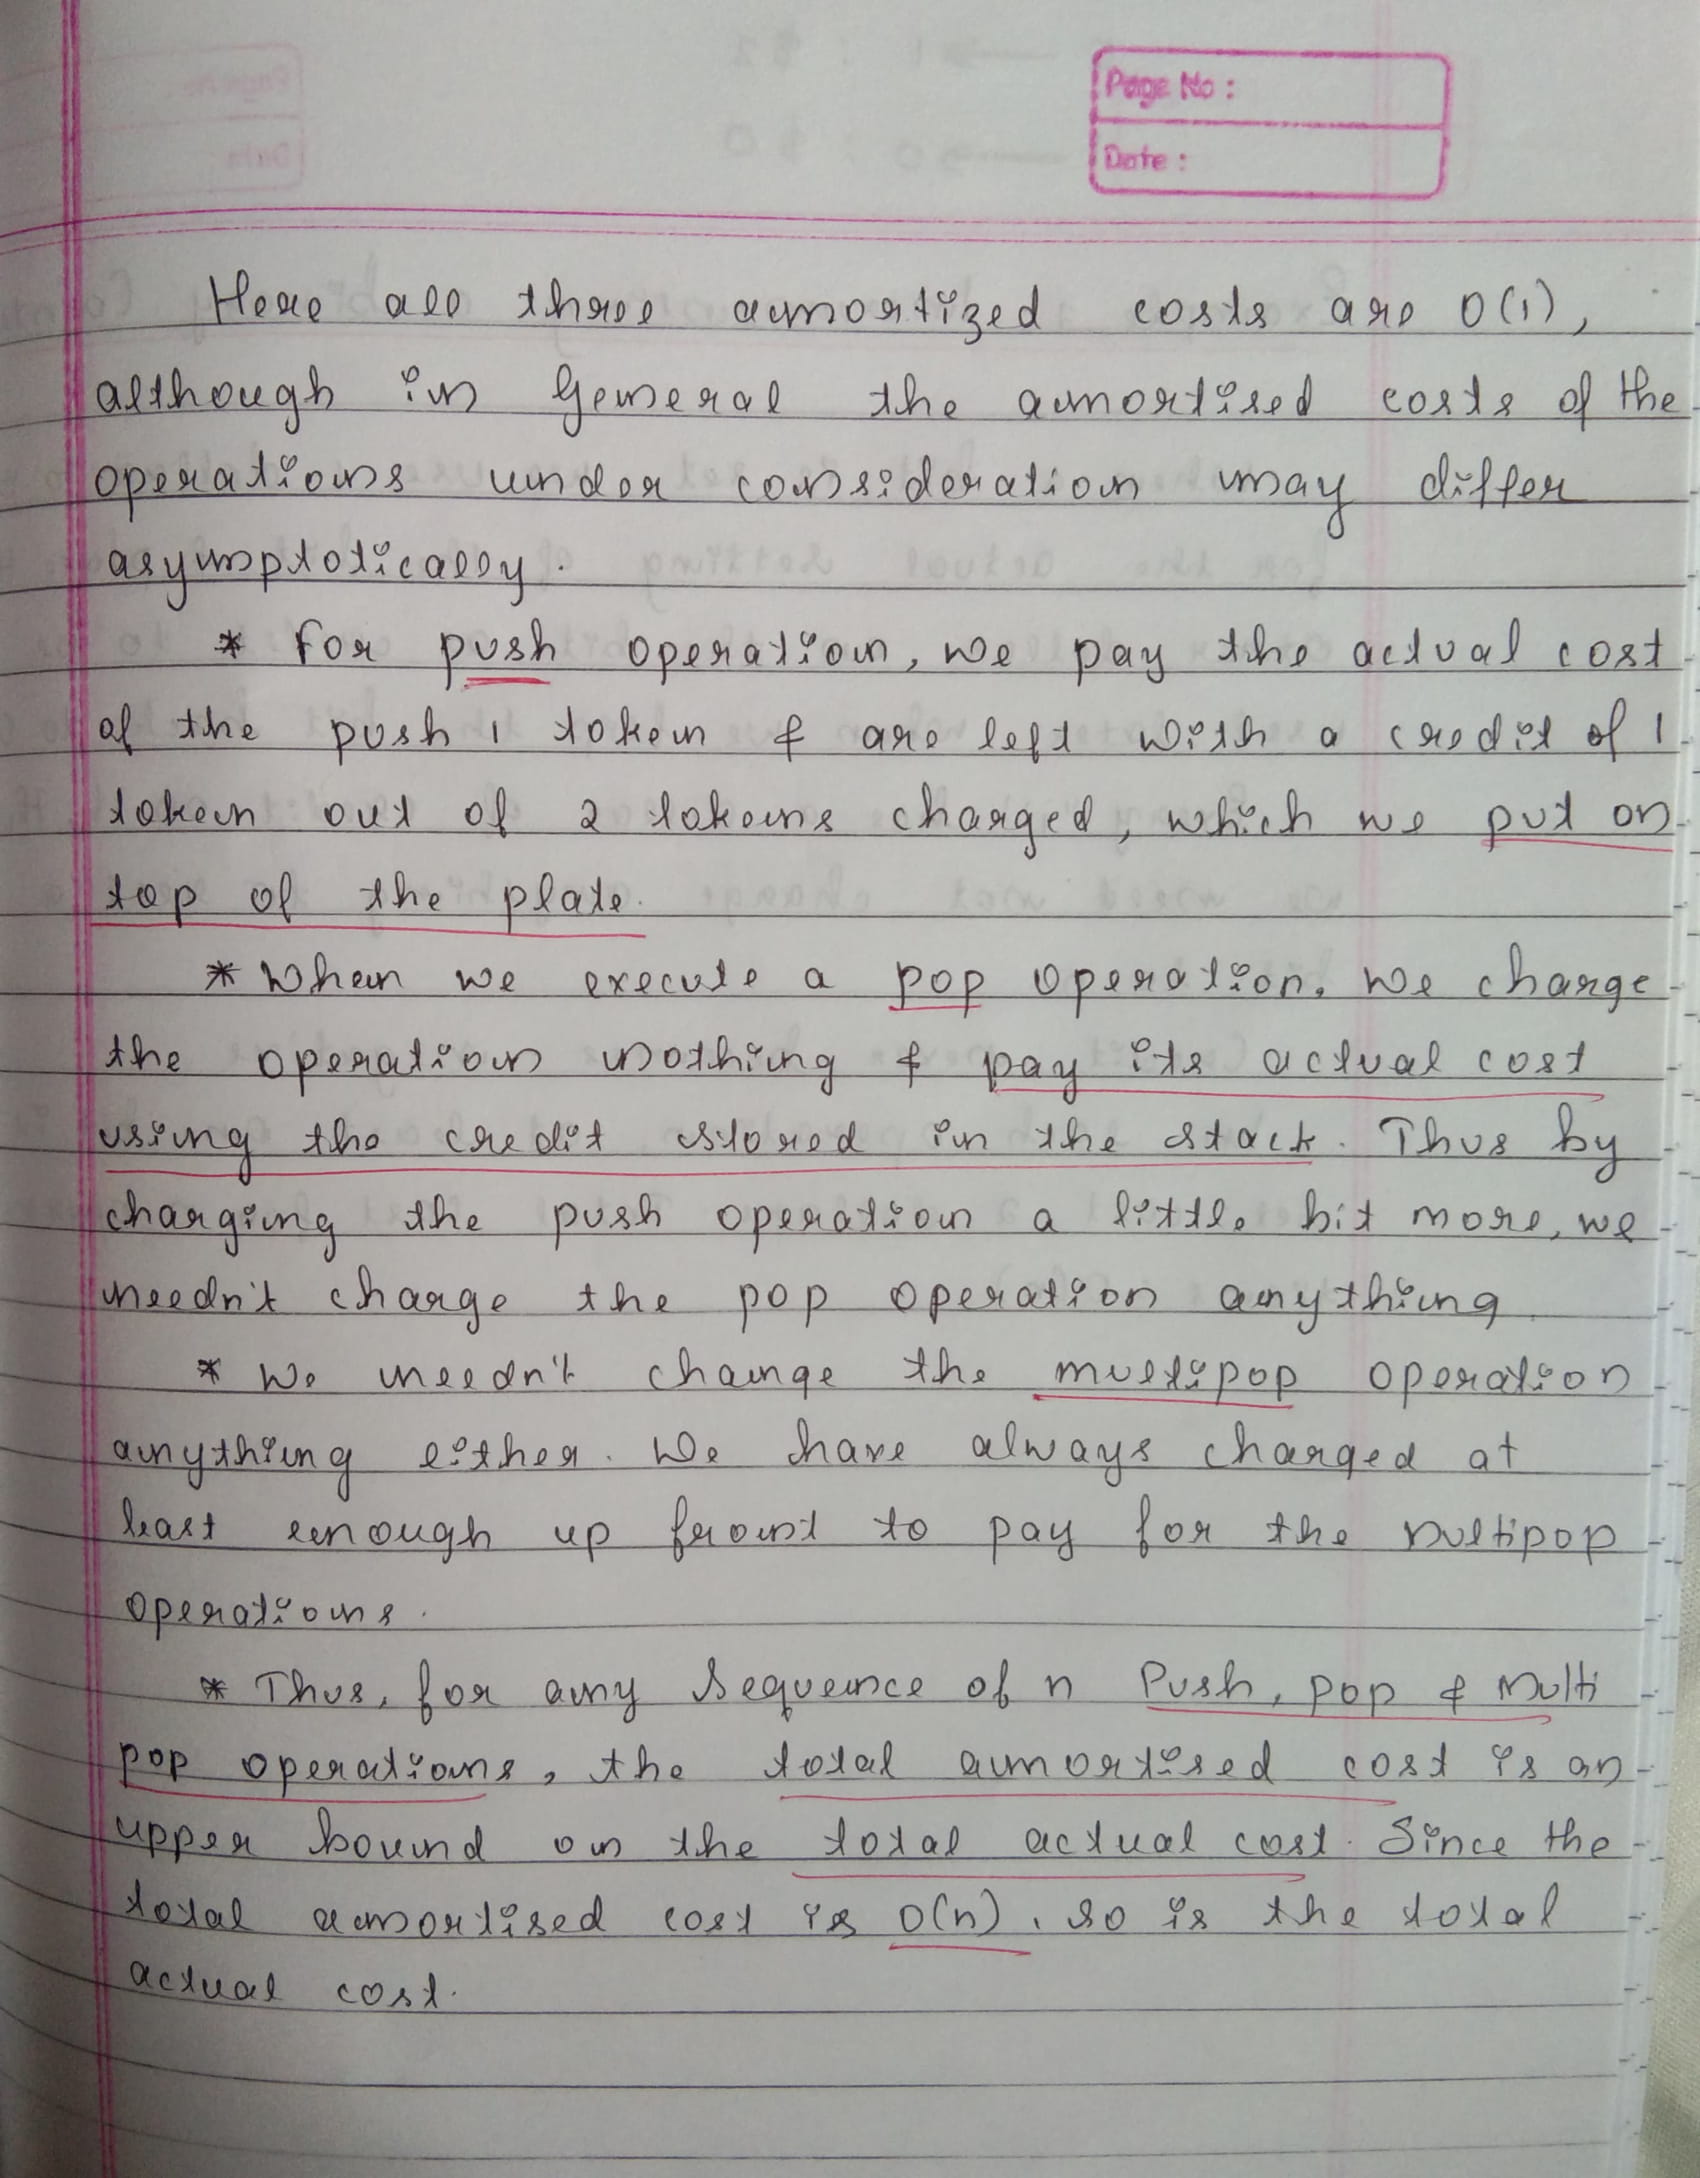 Page No :
Date :
Here all three amortized costs are O(1),
although in General the amortised costs of the
operations under consideration may differ
asymptotically.
* For push operation, we pay the actual cost
of the push 1 token & are left with a credit of 1
token out of 2 tokens charged, which we put on
top of the plate.
* When we execute a pop operation, we charge
the operation nothing & pay its actual cost
using the credit stored in the stack. Thus by
charging the push operation a little bit more, we
needn't charge the pop operation anything
* We needn't change the multipop operation
anything either. We have always charged at
least enough up front to pay for the multipop
operations.
* Thus, for any Sequence of n Push, pop & Multi
pop operations, the total amortised cost is an
upper bound on the total actual cost. Since the
total amortised cost is O(n), so is the total
actual cost.